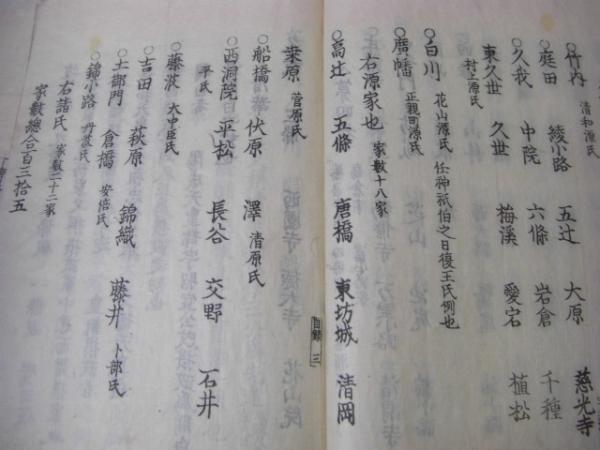 ○竹内 清和源氏
○庭田 綾小路 五辻 大原 慈光寺
○久我 中院 六條 岩倉 千種
東久世 久世 梅溪 愛宕 植松
村上源氏
○白川 花山源氏 任神祇伯之日復王氏例也
○廣幡 正親町源氏
右源家也 家数十八家
○高辻 五條 唐橋 東坊城 清岡
桒原 菅原氏
目録 三
○船橋 伏原 澤 清原氏
○西洞院 平松 長谷 交野 石井
平氏
○藤波 大中臣氏
○吉田 萩原 錦織 藤井 卜部氏
○土御門 倉橋 安倍氏
○錦小路 丹波氏
右諸氏 家数二十二家
家数總合百三拾五